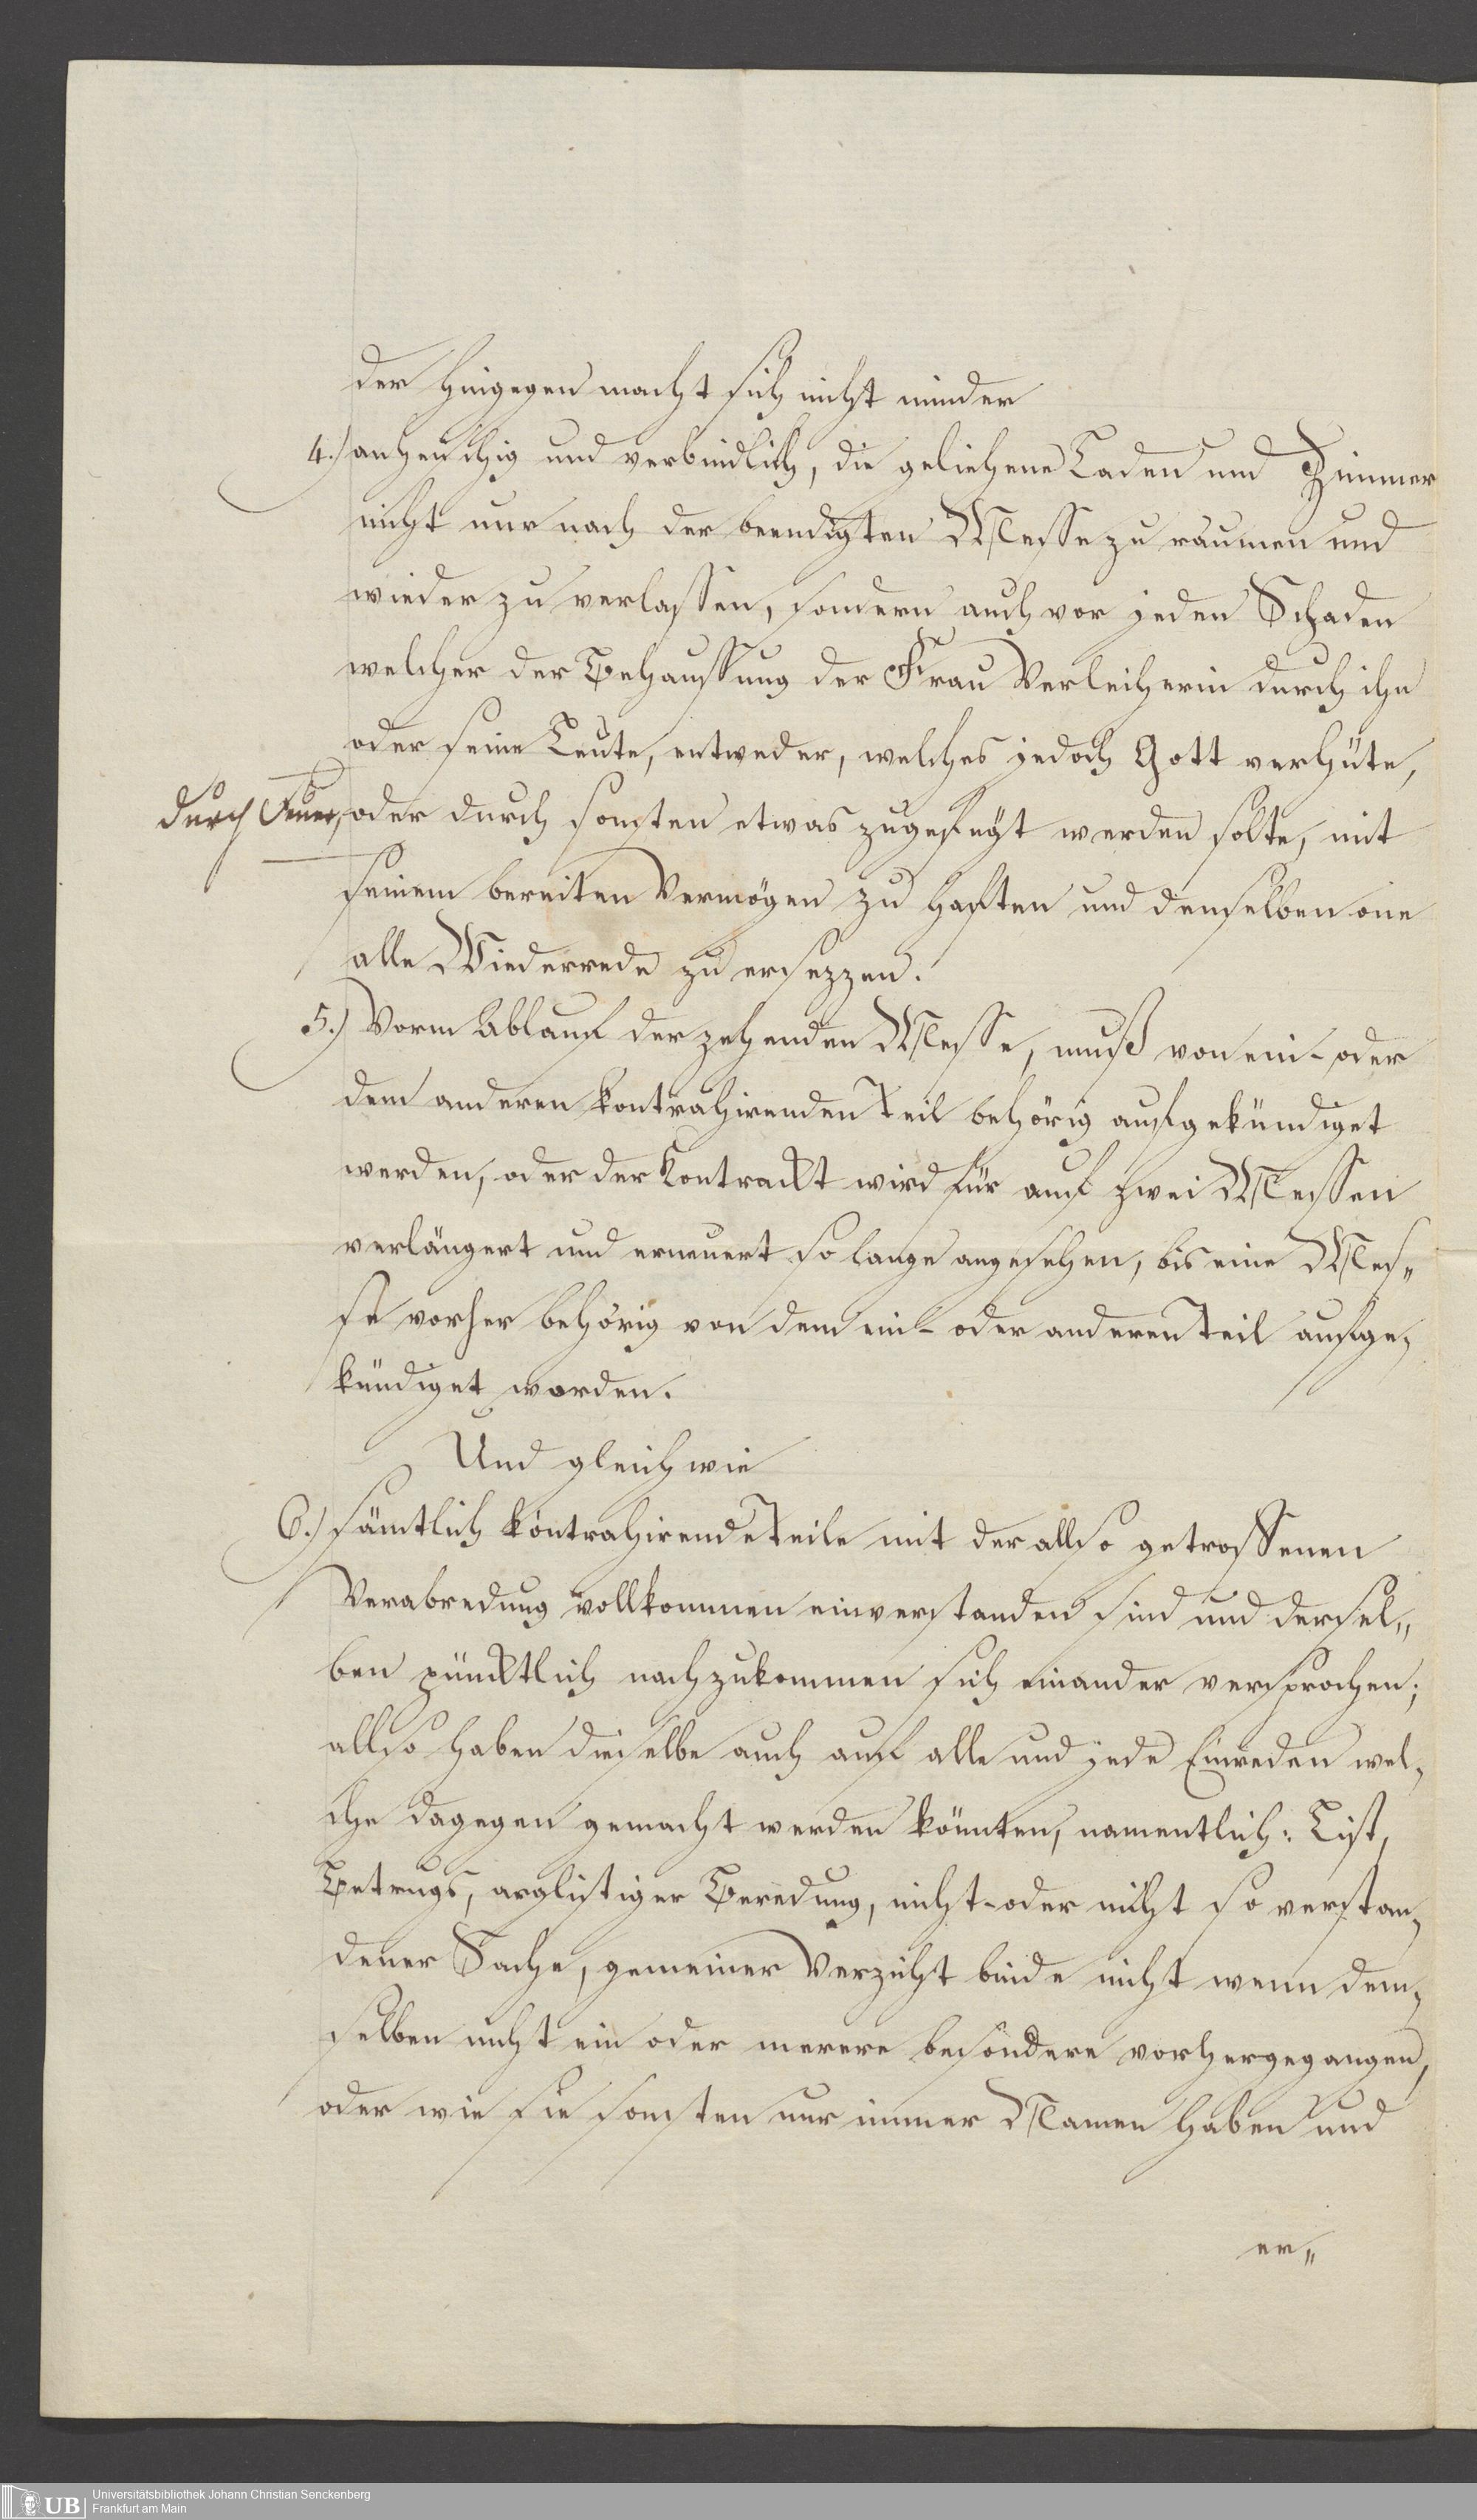 der hingegen macht sich nicht minder
4.) anheuschig und verbindlich, die geliehene Laden und Zimmer
nicht nur nach der beendigten Messe zu räumen und
wieder zu verlassen, sondern auch vor jeden Schaden
welcher der Behaussung der Frau Verleiherin durch ihn
oder seine Leute, entweder, welches jedoch Gott verhüte,
durch Feuer, oder durch sonsten etwas zugefügt werden solte, mit
seinem bereiten Vermögen zu haften und denselben one
alle Wiederrede zu ersezzen.
5.) Vorm Ablauf der zehenden Messe, muß von ein- oder
dem anderen kontrahirenden Teil behörig aufgekündiget
werden, oder der Kontrackt wird für auf zwei Messen
verlängert und erneuert so lange angesehen, bis eine Mes„
se vorher behörig von dem ein- oder anderen Teil aufge,
kündiget worden.
Und gleichwie
6.) sämtlich kontrahirende Teile mit der allso getroffenen
Verabredung vollkommen einverstanden sind und dersel„
ben pünktlich nachzukommen sich einander versprochen;
allso haben dieselbe auch auf alle und jede Einreden wel,
che dagegen gemacht werden könnten, namentlich: List,
Betrugs, arglistiger Beredung, nicht- oder nicht so verstan,
dener Sache, gemeiner Verzicht binde nicht wenn dem,
selben nicht ein oder merere besondere vorhergegangen,
oder wie sie sonsten nur immer Namen haben und
er„
UB
Universitätsbibliothek Johann Christian Senckenberg
Frankfurt am Main